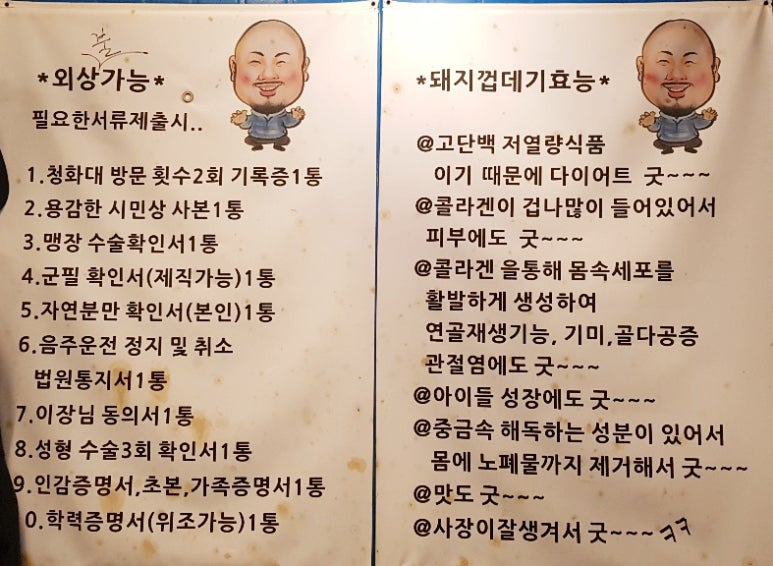 불
*외상가능*
필요한서류제출시..
1.청화대 방문 횟수2회 기록증1통
2.용감한 시민상 사본1통
3.맹장 수술확인서1통
4.군필 확인서(제직가능)1통
5.자연분만 확인서(본인)1통
6.음주운전 정지 및 취소
법원통지서1통
7.이장님 동의서1통
8.성형 수술3회 확인서1통
9.인감증명서,초본,가족증명서1통
0.학력증명서(위조가능)1통
*돼지껍데기효능*
@고단백 저열량식품
이기 때문에 다이어트 굿~~~
@콜라겐이 겁나많이 들어있어서
피부에도 굿~~~
@콜라겐 을통해 몸속세포를
활발하게 생성하여
연골재생기능, 기미,골다공증
관절염에도 굿~~~
@아이들 성장에도 굿~~~
@중금속 해독하는 성분이 있어서
몸에 노폐물까지 제거해서 굿~~~
@맛도 굿~~~
@사장이잘생겨서 굿~~~ ㅋㅋ